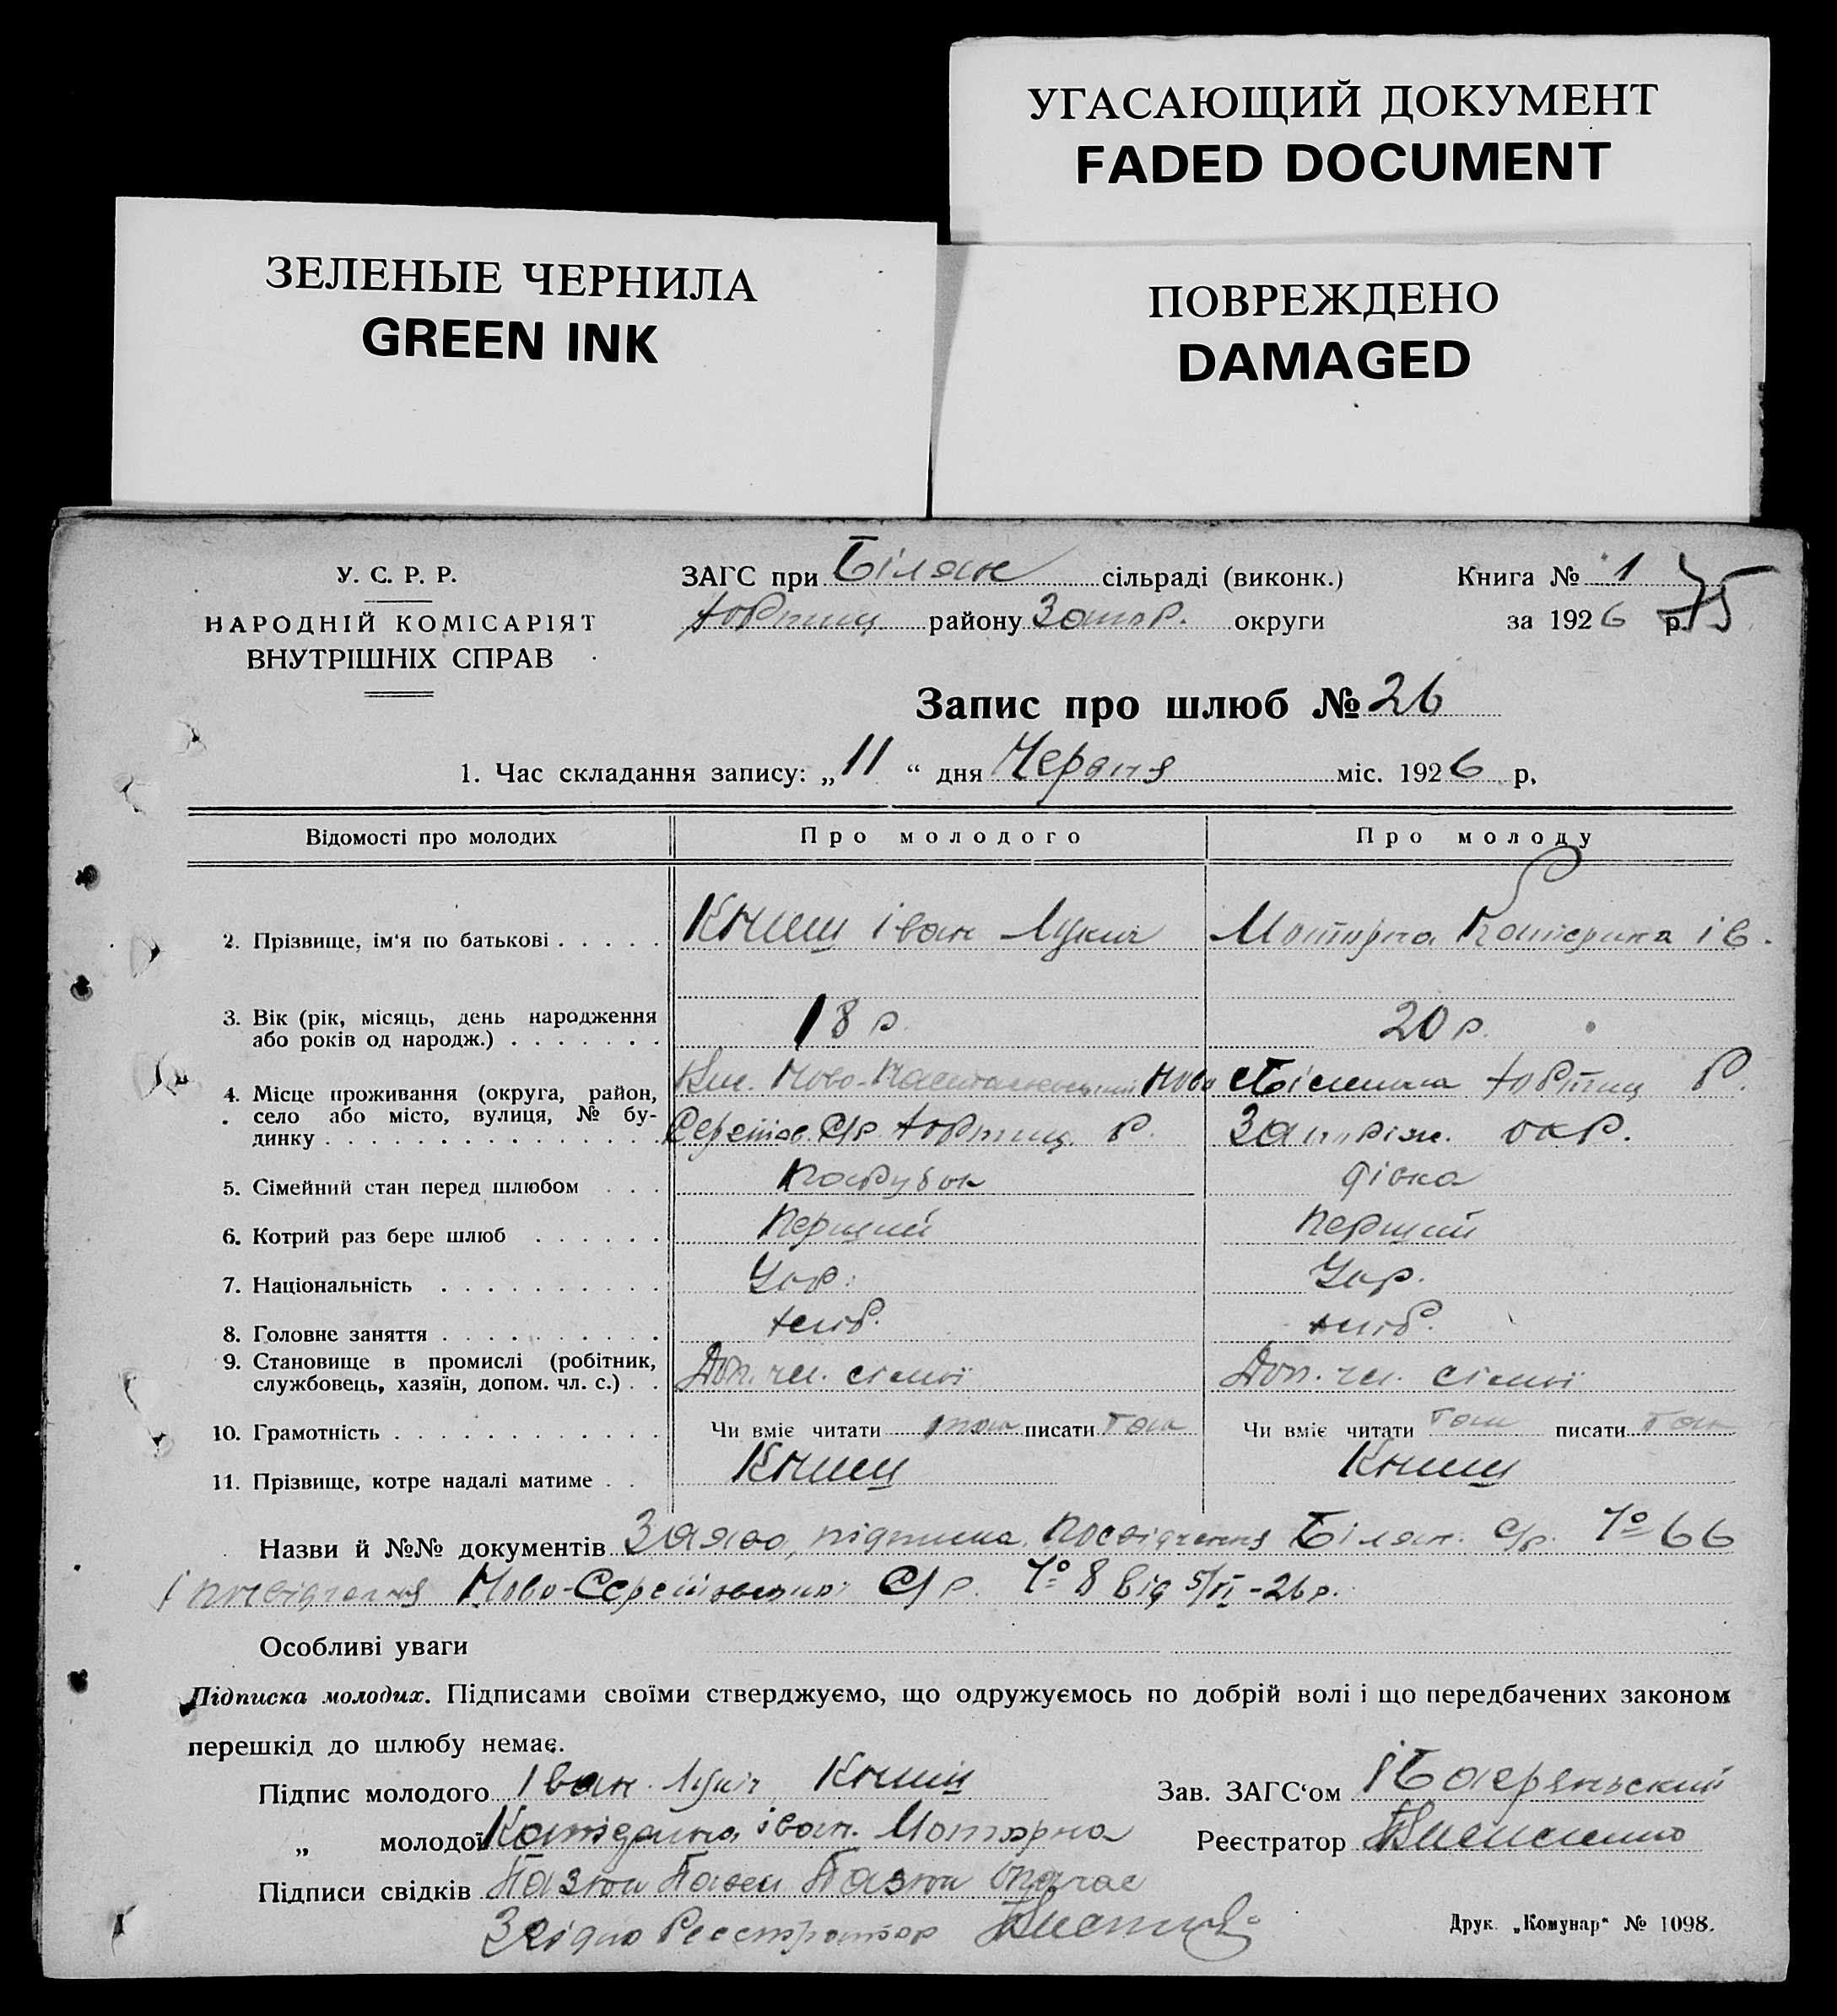 УГАСАЮЩИЙ ДОКУМЕНТ
FADED DOCUMENT
ЗЕЛЕНЫЕ ЧЕРНИЛА
GREEN INK
ПОВРЕЖДЕНО
DAMAGED
У. С. Р. Р.
НАРОДНІЙ КОМІСАРІЯТ
ВНУТРІШНІХ СПРАВ
ЗАГС при Білян сільраді (виконк.)
Хортиц району Запор. округи
Книга № 1
за 1926 р. 75
Запис про шлюб № 26
1. Час складання запису: „11“ дня Червня міс. 1926 р.
Відомості про молодих Про молодого Про молоду
2. Прізвище, ім'я по батькові . . . . . Книш Іван Лукич Моторна Катерина Ів.
3. Вік (рік, місяць, день народження
або років од народж.) . . . . . . . 18 р. 20 р.
4. Місце проживання (округа, район,
село або місто, вулиця, № бу-
динку . . . . . . . . . . . . . . .
Ново Хортиц Р.
С/р. Хортиц. Р. Запоріж. окр.
5. Сімейний стан перед шлюбом . . . парубок дівка
6. Котрий раз бере шлюб . . . . . . перший перший
7. Національність . . . . . . . . . . Укр. Укр.
8. Головне заняття . . . . . . . . . . хліб. хліб.
9. Становище в промислі (робітник,
службовець, хазяїн, допом. чл. с.) . . Доп. чл. сімьї Доп. чл. сімьї
10. Грамотність . . . . . . . . . . . . Чи вміє читати так писати так Чи вміє читати так писати так
11. Прізвище, котре надалі матиме . . Книш Книш
Назви й №№ документів Заява, підписка, посвідчення Білян. С/р. № 66
і посвідчення Ново- С/р. № 8 від 5/VI-26 р.
Особливі уваги
Підписка молодих. Підписами своїми стверджуємо, що одружуємось по добрій волі і що передбачених законом
перешкід до шлюбу немає.
Підпис молодого Іван Лукич Книш
Зав. ЗАГС'ом
„ молодої Катерина Іван. Моторна
Реєстратор
Підписи свідків
Згідно Реєстратор
Друк. „Комунар“ № 1098.